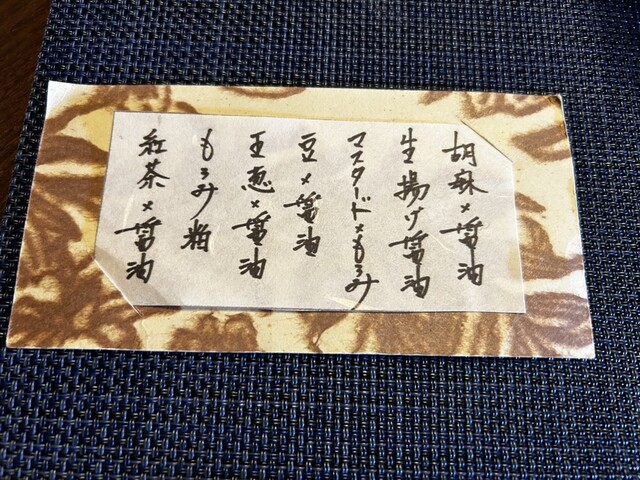 胡麻×醤油
生揚げ醤油
マスタード×もろみ
豆×醤油
玉葱×醤油
もろみ粕
紅茶×醤油